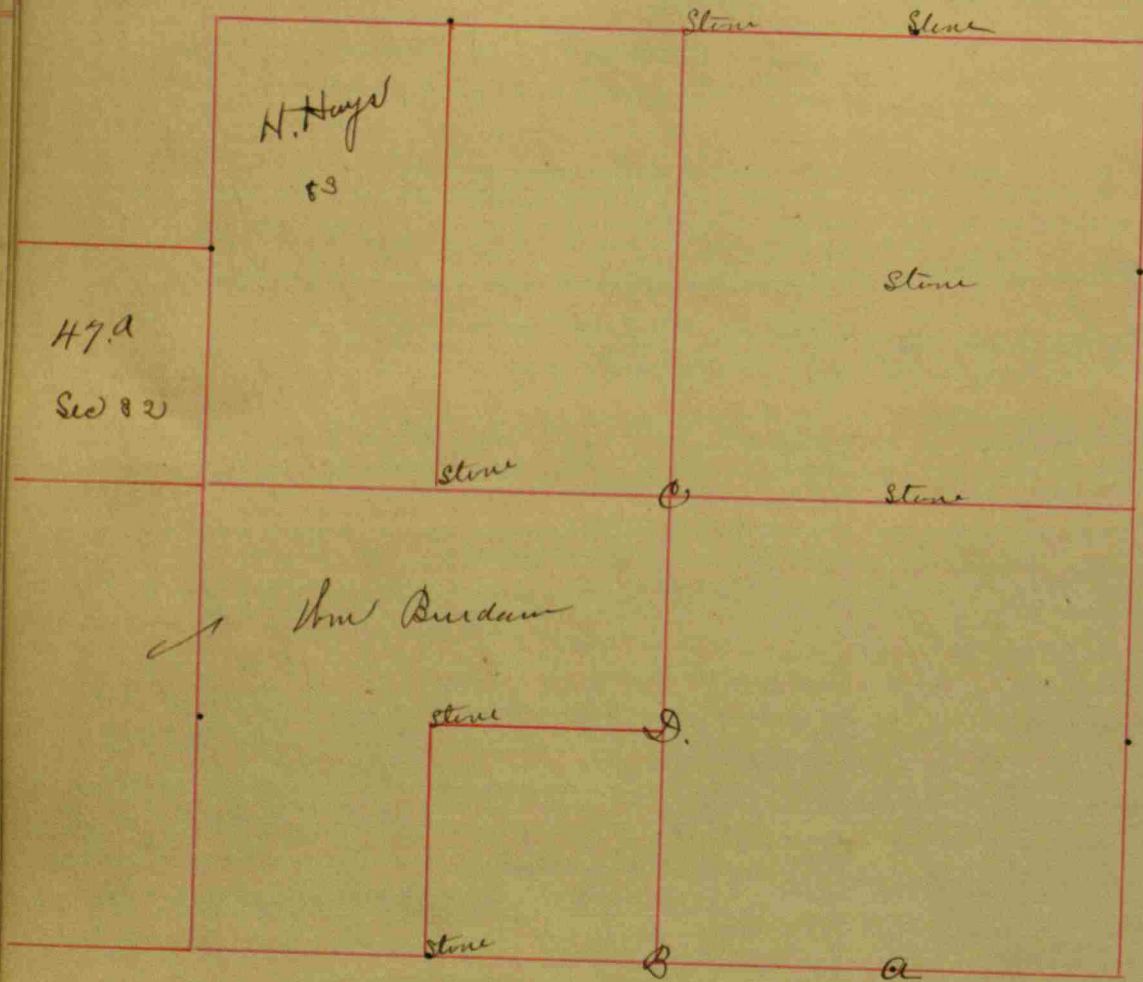 Stone Stone
H. Hays
83
Stone
47.a
Sec 32
Stone
C
Stone
Wm Burdam
Stone
D.
Stone
B
a